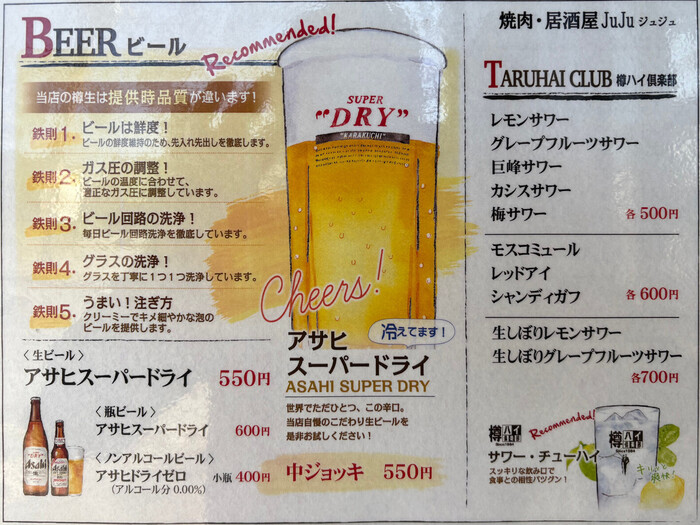 BEER ビール
Recommended!
当店の樽生は提供時品質が違います!
鉄則1. ビールは鮮度!
ビールの鮮度維持のため、先入れ先出しを徹底します。
鉄則2. ガス圧の調整!
ビールの温度に合わせて、
適正なガス圧に調整しています。
鉄則3. ビール回路の洗浄!
毎日ビール回路洗浄を徹底しています。
鉄則4. グラスの洗浄!
グラスを丁寧に1つ1つ洗浄しています。
鉄則5. うまい!注ぎ方
クリーミーでキメ細やかな泡の
ビールを提供します。
〈生ビール〉
アサヒスーパードライ 550円
〈瓶ビール〉
アサヒスーパードライ 600円
〈ノンアルコールビール〉
アサヒドライゼロ 小瓶 400円
(アルコール分 0.00%)
Asahi
Asahi
SUPER
"DRY"
"KARAKUCHI"
Cheers!
冷えてます!
アサヒ
スーパードライ
ASAHI SUPER DRY
世界でただひとつ、この辛口。
当店自慢のこだわり生ビールを
是非お試しください!
中ジョッキ 550円
焼肉・居酒屋 JuJu ジュジュ
TARUHAI CLUB 樽ハイ倶楽部
レモンサワー
グレープフルーツサワー
巨峰サワー
カシスサワー
梅サワー 各500円
モスコミュール
レッドアイ
シャンディガフ 各600円
生しぼりレモンサワー
生しぼりグレープフルーツサワー
各700円
樽ハイ
倶楽部
Since1984
Recommended!
サワー・チューハイ
スッキリな飲み口で
食事との相性バツグン!
樽ハイ
倶楽部
Since1984
キリッと
爽快!